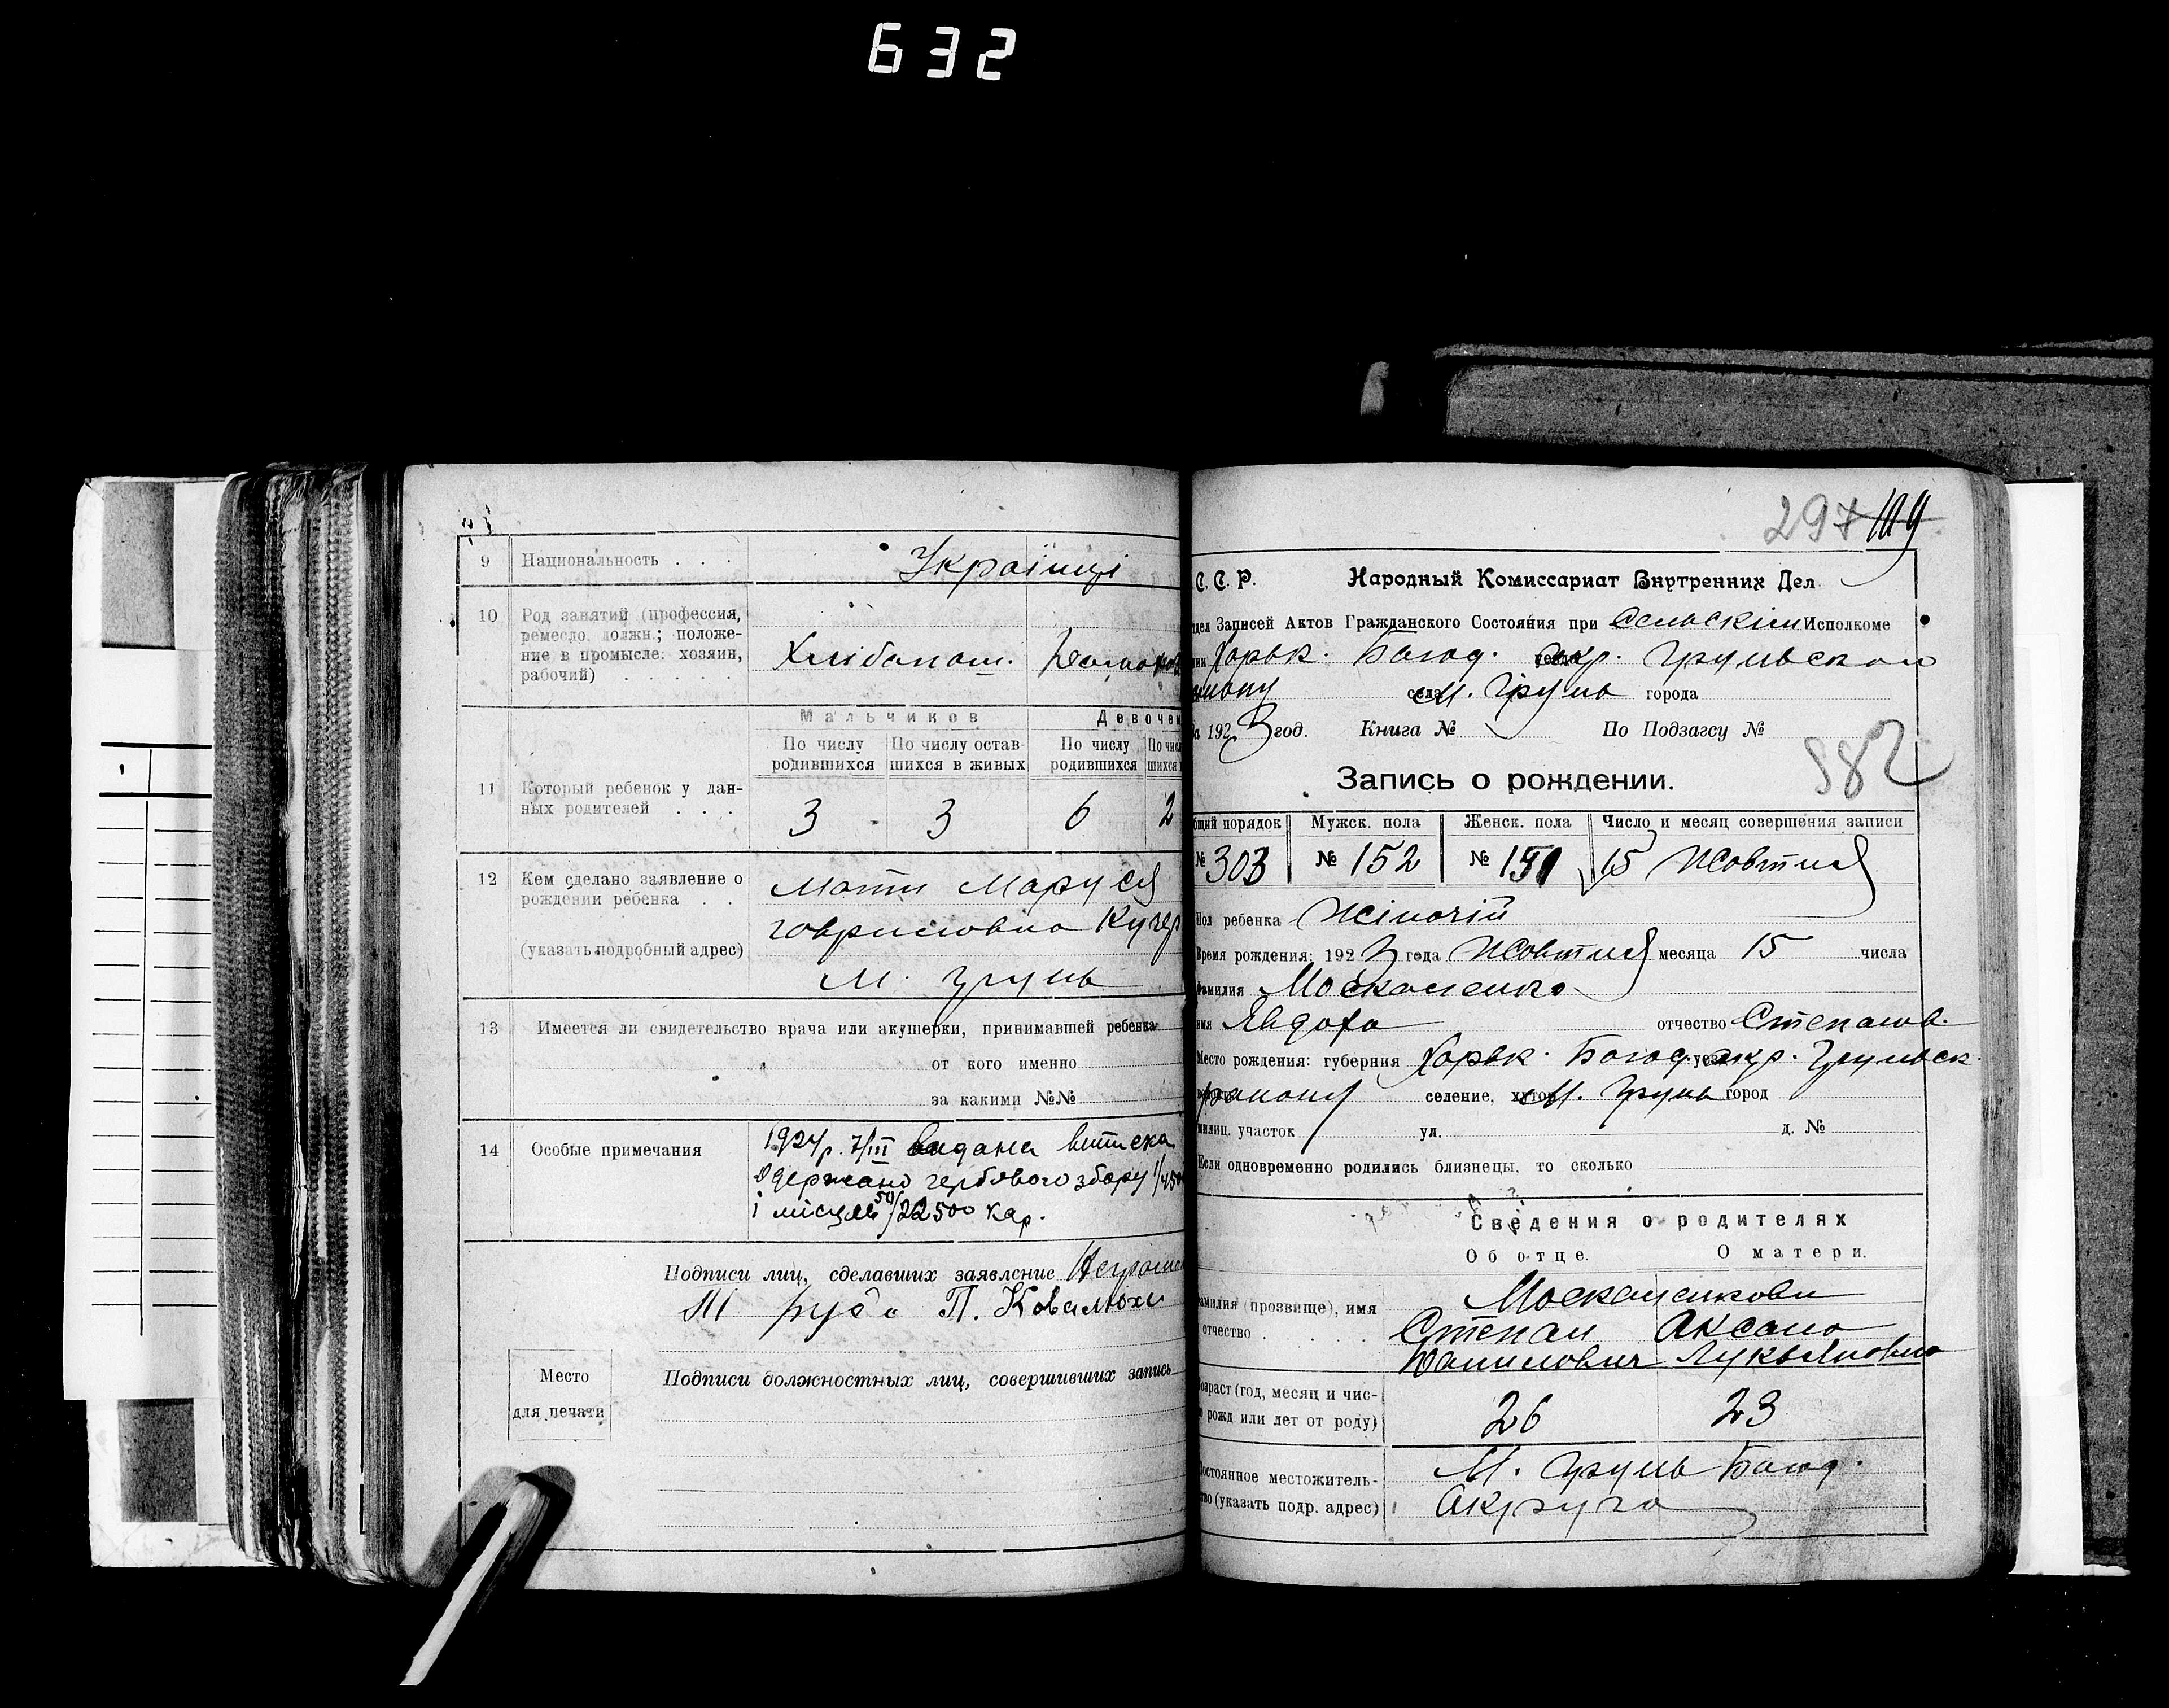 632
9 Национальность . . . Українці
10 Род занятий (профессия,
ремесло, должн.; положе-
ние в промысле: хозяин,
рабочий) . . . . .
Хлібопаш.
Мальчиков Девочек
По числу родившихся По числу остав-шихся в живых По числу родившихся
11 Который ребенок у дан-
ных родителей . . .
3 3 6 2
12 Кем сделано заявление о
рождении ребенка . .
(указать подробный адрес)
Мати Маруся
Гаврисловна Кучер
М. Грунь
13 Имеется ли свидетельство врача или акушерки, принимавшей ребенка
от кого именно
за какими №№
14 Особые примечания
1924 р. 7/III видана витиска
Одержано гербового збору
і місцев 50/22500 кар.
Подписи лиц, сделавших заявление
П. Ковалюх
Место
для печати
Подписи должностных лиц, совершивших запись
297 119
С. С. Р. Народный Комиссариат Внутренних Дел.
Записей Актов Гражданского Состояния при Сельскім Исполкоме
Харьк. Богод. окр. Груньской
села М. Грунь города
192 3 год. Книга № По Подзагсу №
382
Запись о рождении.
порядок Мужск. пола Женск. пола Число и месяц совершения записи
№ 303 № 152 № 151 15 Жовтня
Пол ребенка Жіночій
Время рождения: 192 3 года Жовтня месяца 15 числа
Фамилия Москаленко
имя Явдоха отчество Степанов.
Место рождения: губерния Харьк. Богод. окр. Груньск.
району селение, хутор М. Грунь город
милиц. участок ул. д. №
Если одновременно родились близнецы, то сколько
Сведения о родителях
Об отце. О матери.
Фамилия (прозвище), имя
отчество . . . . .
Москаленкови
Степан Аксана
Данилович Лукьяновна
Возраст (год, месяц и чис-
рожд или лет от роду)
26 23
Постоянное местожитель-
ство (указать подр. адрес)
М. Грунь Богод.
Округа